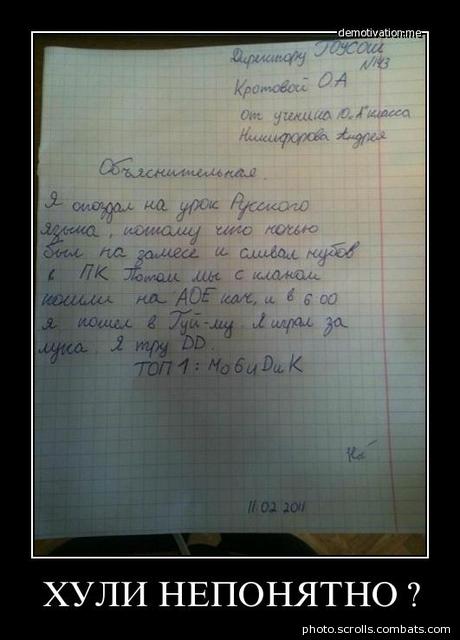 demotivation.me
Директору ГОУСОШ
№143
Кротовой О А
от ученика 10 "А" класса
Никифорова Андрея
Объяснительная.
Я опоздал на урок Русского
языка, потому что ночью
был на замесе и сливал нубов
в ПК Потом мы с кланом
пошли на АОЕ кач, и в 6 00
я пошел в Гуй-му. Я играл за
лука. Я тру DD.
ТОП 1: МоБиDиК
11.02 2011
ХУЛИ НЕПОНЯТНО ?
photo.scrolls.combats.com